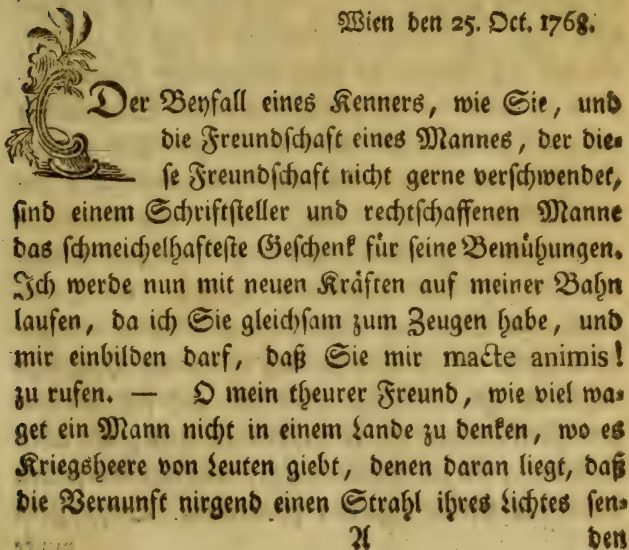 Wien den 25. Oct. 1768.
Der Beyfall eines Kenners, wie Sie, und
die Freundschaft eines Mannes, der die-
se Freundschaft nicht gerne verschwendet,
sind einem Schriftsteller und rechtschaffenen Manne
das schmeichelhafteste Geschenk für seine Bemühungen.
Ich werde nun mit neuen Kräften auf meiner Bahn
laufen, da ich Sie gleichsam zum Zeugen habe, und
mir einbilden darf, daß Sie mir macte animis!
zu rufen. — O mein theurer Freund, wie viel wa-
get ein Mann nicht in einem Lande zu denken, wo es
Kriegsheere von Leuten giebt, denen daran liegt, daß
die Vernunft nirgend einen Strahl ihres Lichtes sen-
A den